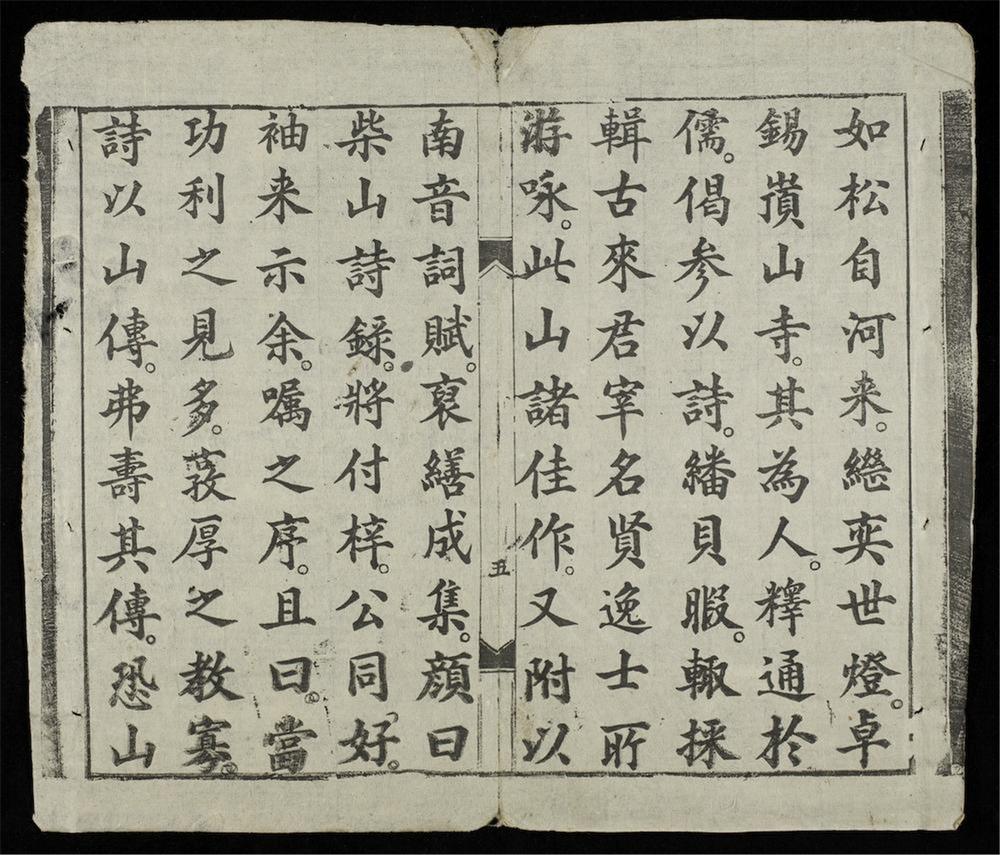 如松自河来。繼奕世燈。卓
錫崀山寺。其為人。釋通於
儒。偈参以詩。繙貝暇。輙採
輯古來君宰名賢逸士所
游咏。此山諸佳作。又附以
五
南音詞賦。裒繕成集。顔曰
柴山詩錄。將付梓。公同好。
袖来示余。嘱之序。且曰。當
功利之見多。敦厚之教寡。
詩以山傳。弗壽其傳。恐山